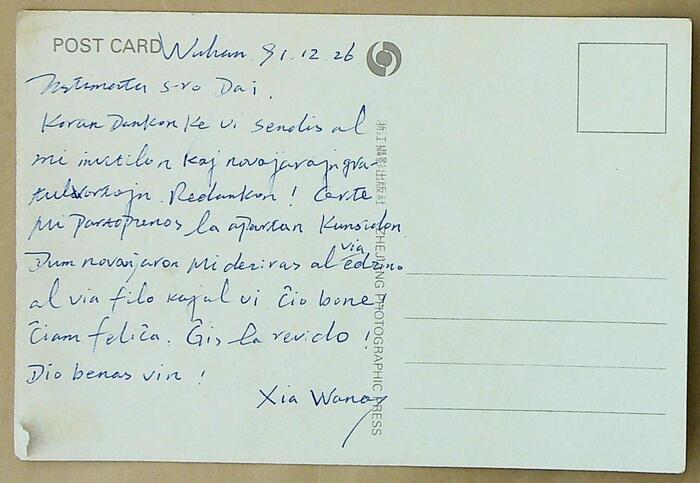 POST CARD
Wuhan. 91.12.26
Estimata s-ro Dai.
Koran Dankon Ke vi sendis al
mi invitilon Kaj novajarajn gra-
tulvortojn. Redankon! Certe
Mi Partoprenos la apartan Kunsidon.
Dum novanjaron Mi deziras al via edzino
al via filo kaj al vi ĉio bone,
Ĉiam feliĉa. Ĝis la revido!
Dio benas vin!
Xia Wang
浙江攝影出版社 ZHEJIANG PHOTOGRAPHIC PRESS